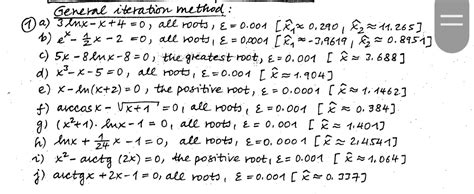 General iteration method:
① a) 3lnx - x + 4 = 0, all roots, ε = 0.001 [x̂₁ ≈ 0.290, x̂₂ ≈ 11.265]
b) eˣ - ½x - 2 = 0, all roots, ε = 0.0001 [x̂₁ ≈ -3.9619, x̂₂ ≈ 0.8951]
c) 5x - 8lnx - 8 = 0, the greatest root, ε = 0.001 [x̂ ≈ 3.688]
d) x³ - x - 5 = 0, all roots, ε = 0.001 [x̂ ≈ 1.904]
e) x - ln(x+2) = 0, the positive root, ε = 0.0001 [x̂ ≈ 1.1462]
f) arccosx - √(x+1) = 0, all roots, ε = 0.001 [x̂ ≈ 0.384]
g) (x²+1)·lnx - 1 = 0, all roots, ε = 0.001 [x̂ ≈ 1.401]
h) lnx + 1/24 x - 1 = 0, all roots, ε = 0.0001 [x̂ ≈ 2.4541]
i) x² - arctg(2x) = 0, the positive root, ε = 0.001 [x̂ ≈ 1.064]
j) arctgx + 2x - 1 = 0, all roots, ε = 0.001 [x̂ ≈ 0.337]